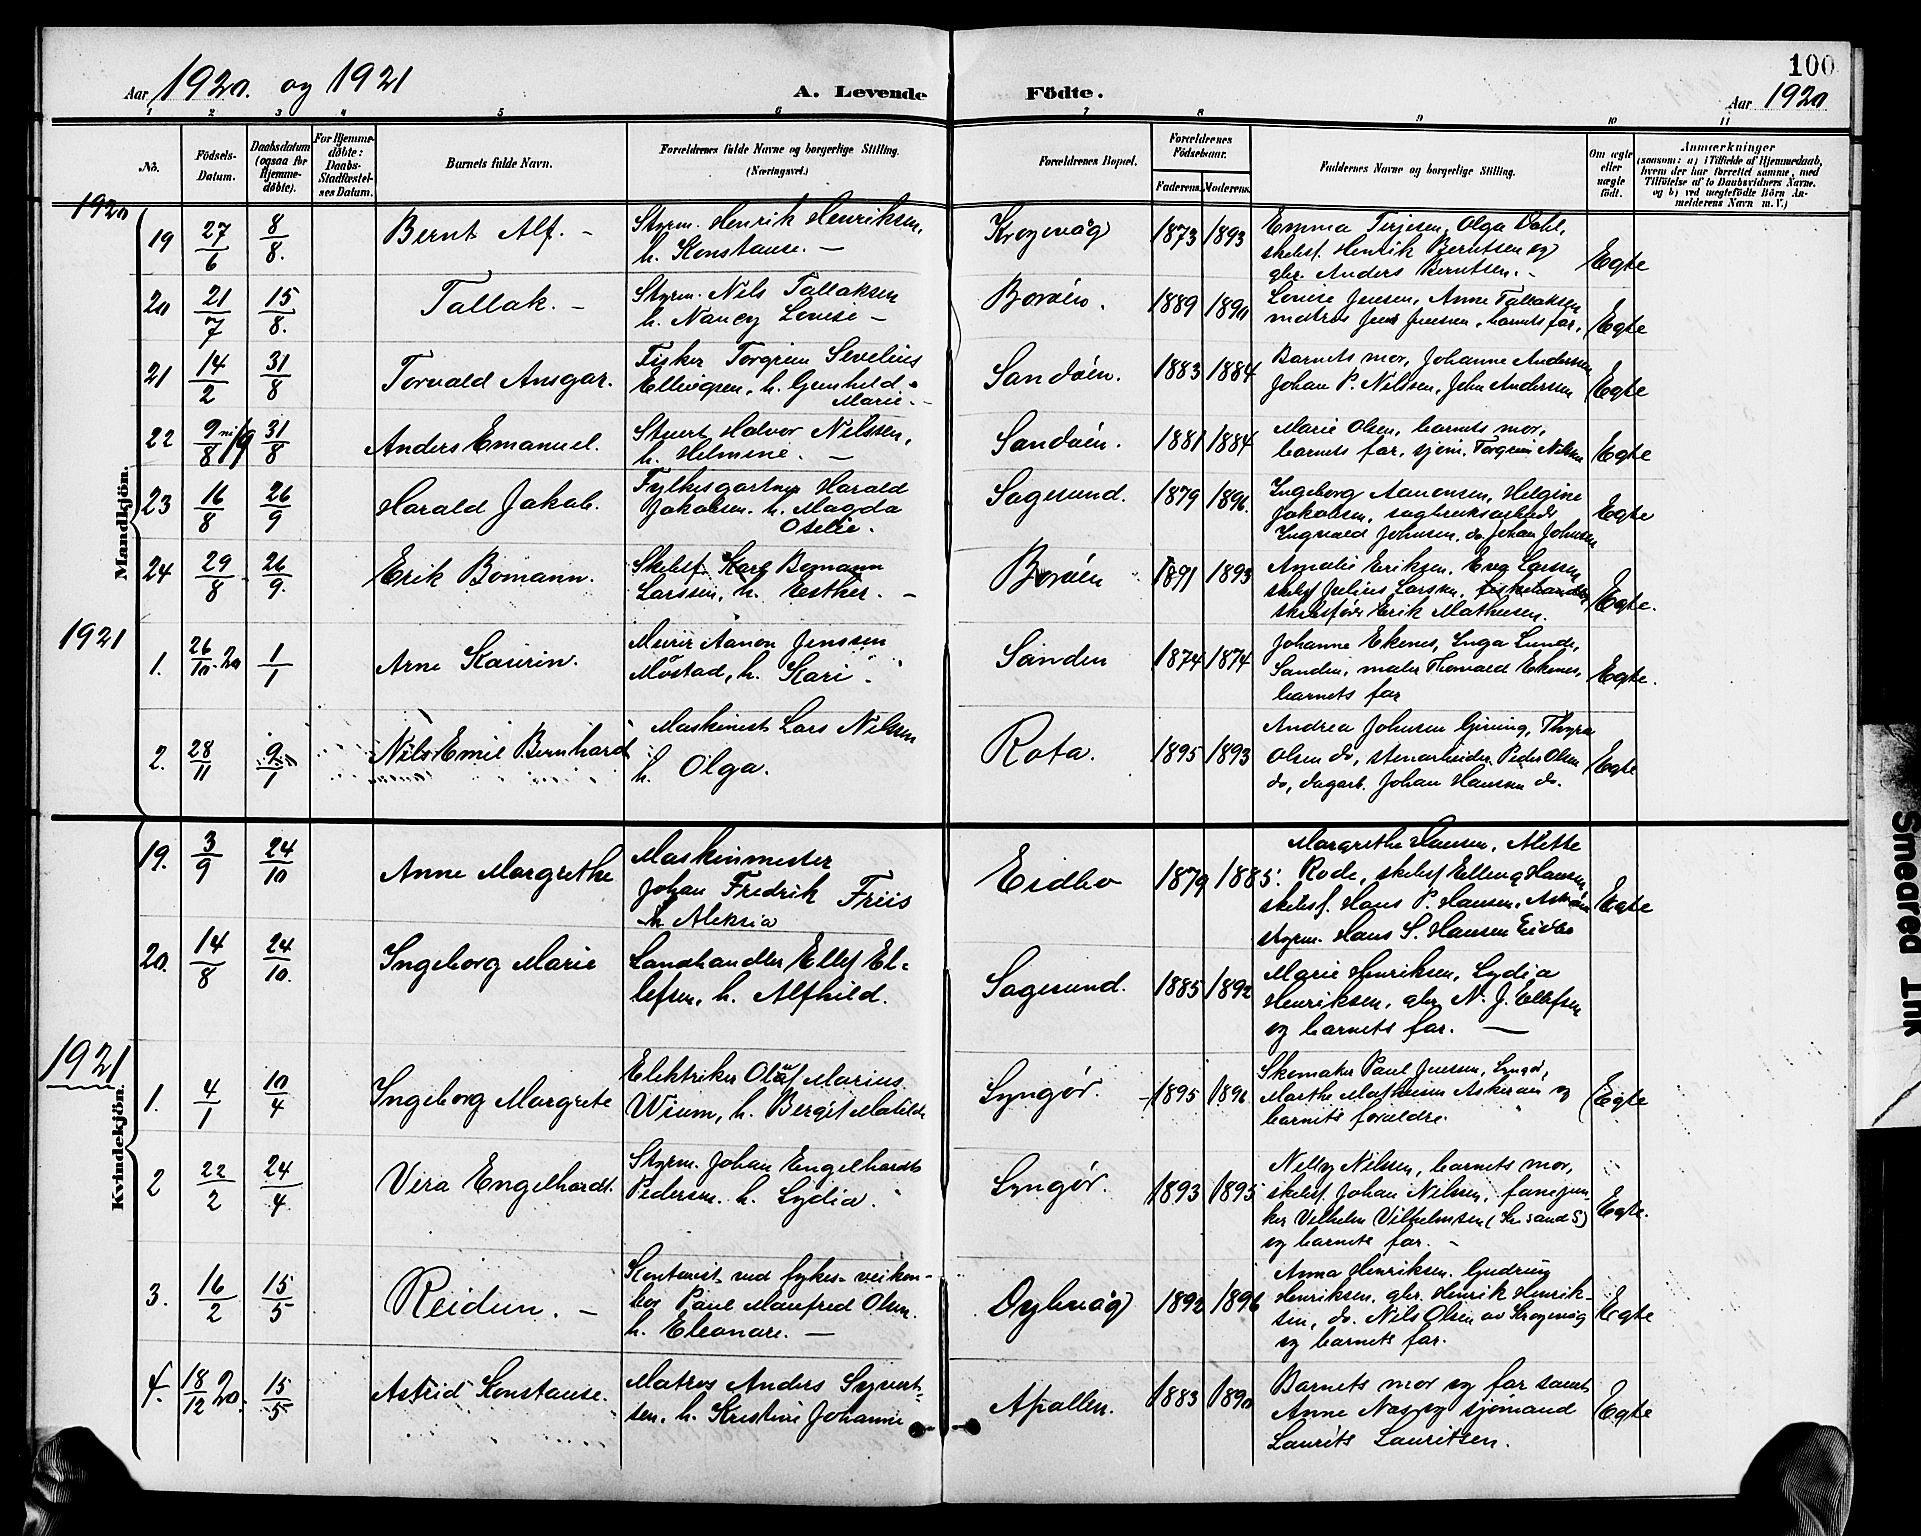 100
Aar 1920 og 1921
A. Levende Födte.
Aar 1920
1 2 3 4 5 6 7 8 9 10 11
No.
Födsels-Datum.
Daabsdatum (ogsaa for Hjemmedöbte).
For Hjemmedöbte: Daabs-Stadfæstelses Datum.
Barnets fulde Navn.
Forældrenes fulde Navne og borgerlige Stilling. (Næringsvei.)
Forældrenes Bopæl.
Forældrenes Födselsaar.
Faderens. Moderens.
Faddernes Navne og borgerlige Stilling.
Om ægte eller uægte födt.
Anmærkninger
(saasom: a) i Tilfælde af Hjemmedaab,
hvem der har forrettet samme, med
Tilföielse af to Daabsvidners Navne.
og b) ved uegtefödte Börn An-
melderens Navn m. V.)
1920
Mandkjön.
19 27/6 8/8. Bernt Alf. - Styrm. Henrik Henriksen, h. Konstanse. - Krogevåg 1873 1893 Emma Terjesen, Olga Dahl, skibsf. Henrik Berntsen og gbr. Anders Berntsen. - Egte
20 21/7 15/8. Tallak. - Styrm. Nils Tallaksen h. Nancy Lovise - Borøen. 1889 1890 Lovise Jensen, Anne Tallaksen matros Jens Jensen, barnets far. Egte
21 14/2 31/8 Torvald Ansgar. Fisker Torgrim Sevelius Ellingsen, h. Gunhild Marie. - Sandøen. 1883 1884 Barnets mor, Johanne Andersen Johan P. Nilssen, John Andersen Egte
22 9/8 31/8 Anders Emanuel. Stuert Halvor Nilssen, h. Helmine. - Sandøen. 1881 1884 Marie Olsen, barnets mor, barnets far, sjøm. Torgrim Nilssen Egte
23 16/8 26/9 Harald Jakob. Fylkesgartner Harald Jakobsen. h. Magda Otelie. Sagesund. 1879 1896. Ingeborg Aanonsen, Helgine Jakobsen, sagbruksarbeider Ingvald Johnsen, do Johan Johnsen Egte
24 29/8 26/9. Erik Bomann. Skibsf. Karl Bomann Larssen, h. Esther. - Borøen 1891 1893 Amalie Eriksen, Eva Larssen skibsf Julius Larssen, skibsfører Erik Mathisen. Egte.
1921
1. 26/10.20 1/1 Arne Kaurin. Murer Aanon Jenssen Møstad, h. Kari. Sanden 1874 1874 Johanne Ekenes, Inga Lunde, Sanden, maler Thorvald Ekenes, barnets far Egte.
2. 28/11 9/1 Nils Emil Bernhard Maskinist Lars Nilssen h. Olga. Rota. 1895 1893 Andrea Johnsen Gjeving, Thyra Olsen do, stenarbeider Peder Olsen do, dagarb. Johan Hansen do. Egte
Kvindekjön.
19. 3/9 24/10 Anne Margrethe Maskinmester Johan Fredrik Friis h Aleksia Eidbo 1879 1885. Margrethe Hansen, Mette Rode, skibsf Elling Hansen skibsf. Hans P. Hansen, Askerøen styrm. Hans S. Hansen Eidbo Egte
20. 14/8 24/10. Ingeborg Marie Landhandler Ellef El-lefsen, h. Alfhild. Sagesund. 1885 1892 Marie Henriksen, Lydia Henriksen, gbr N. J. Ellefsen og barnets far. -
1921
1. 4/1 10/4 Ingeborg Margrete Elektriker Oluf Marius Wium, h. Bergit Matilde Lyngør. 1895 1896. Skomaker Paul Jensen, Lyngør, Marthe Mathisen Askerøen og barnets forældre. Egte
2 22/2 24/4. Vera Engelhardt. Styrm. Johan Engelhardt Pedersen. h. Lydia. Lyngør. 1893 1895 Nelly Nilssen, barnets mor, skibsf. Johan Nilssen, fanejun-ker Vilhelm Vilhelmsen (Kr. sand S) og barnets far. - Egte.
3. 16/2 15/5 Reidun. - Kontorist ved fylkes-veikon-tor Paul Manfred Olsen. h. Eleonore. - Dybvåg 1892 1896 Anna Henriksen. Gudrun Henriksen, gbr. Henrik Henrik-sen, do. Nils Olsen av Krogevåg og barnets far. Egte
4. 18/12 20. 15/5 Astrid Konstanse. Matros Anders Syvert-sen, h. Kristine Johanne Apallen. 1883 1890 Barnets mor og far samt Anne Næs og sjømand Laurits Lauritsen. Egte
Smeared Ink